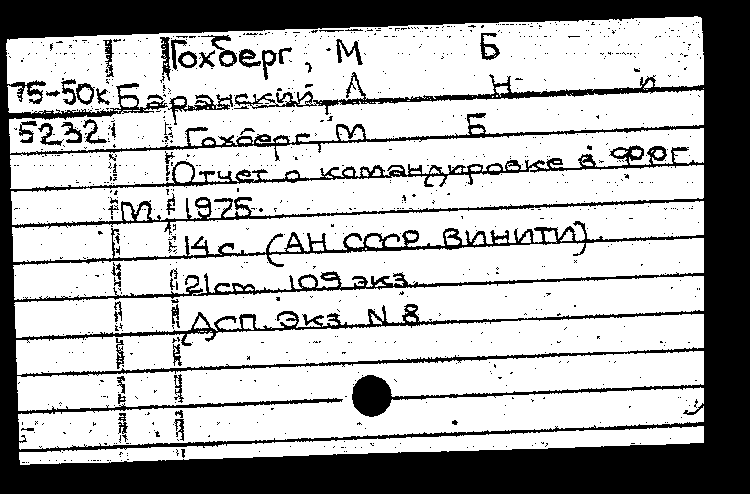 Гохберг, М Б
75-50к Баранский, Л Н и
5232 Гохберг, М Б
Отчет о командировке в ФРГ.
М. 1975.
14 с. (АН СССР. ВИНИТИ).
21 cm. 109 экз.
ДСП. Экз. N 8